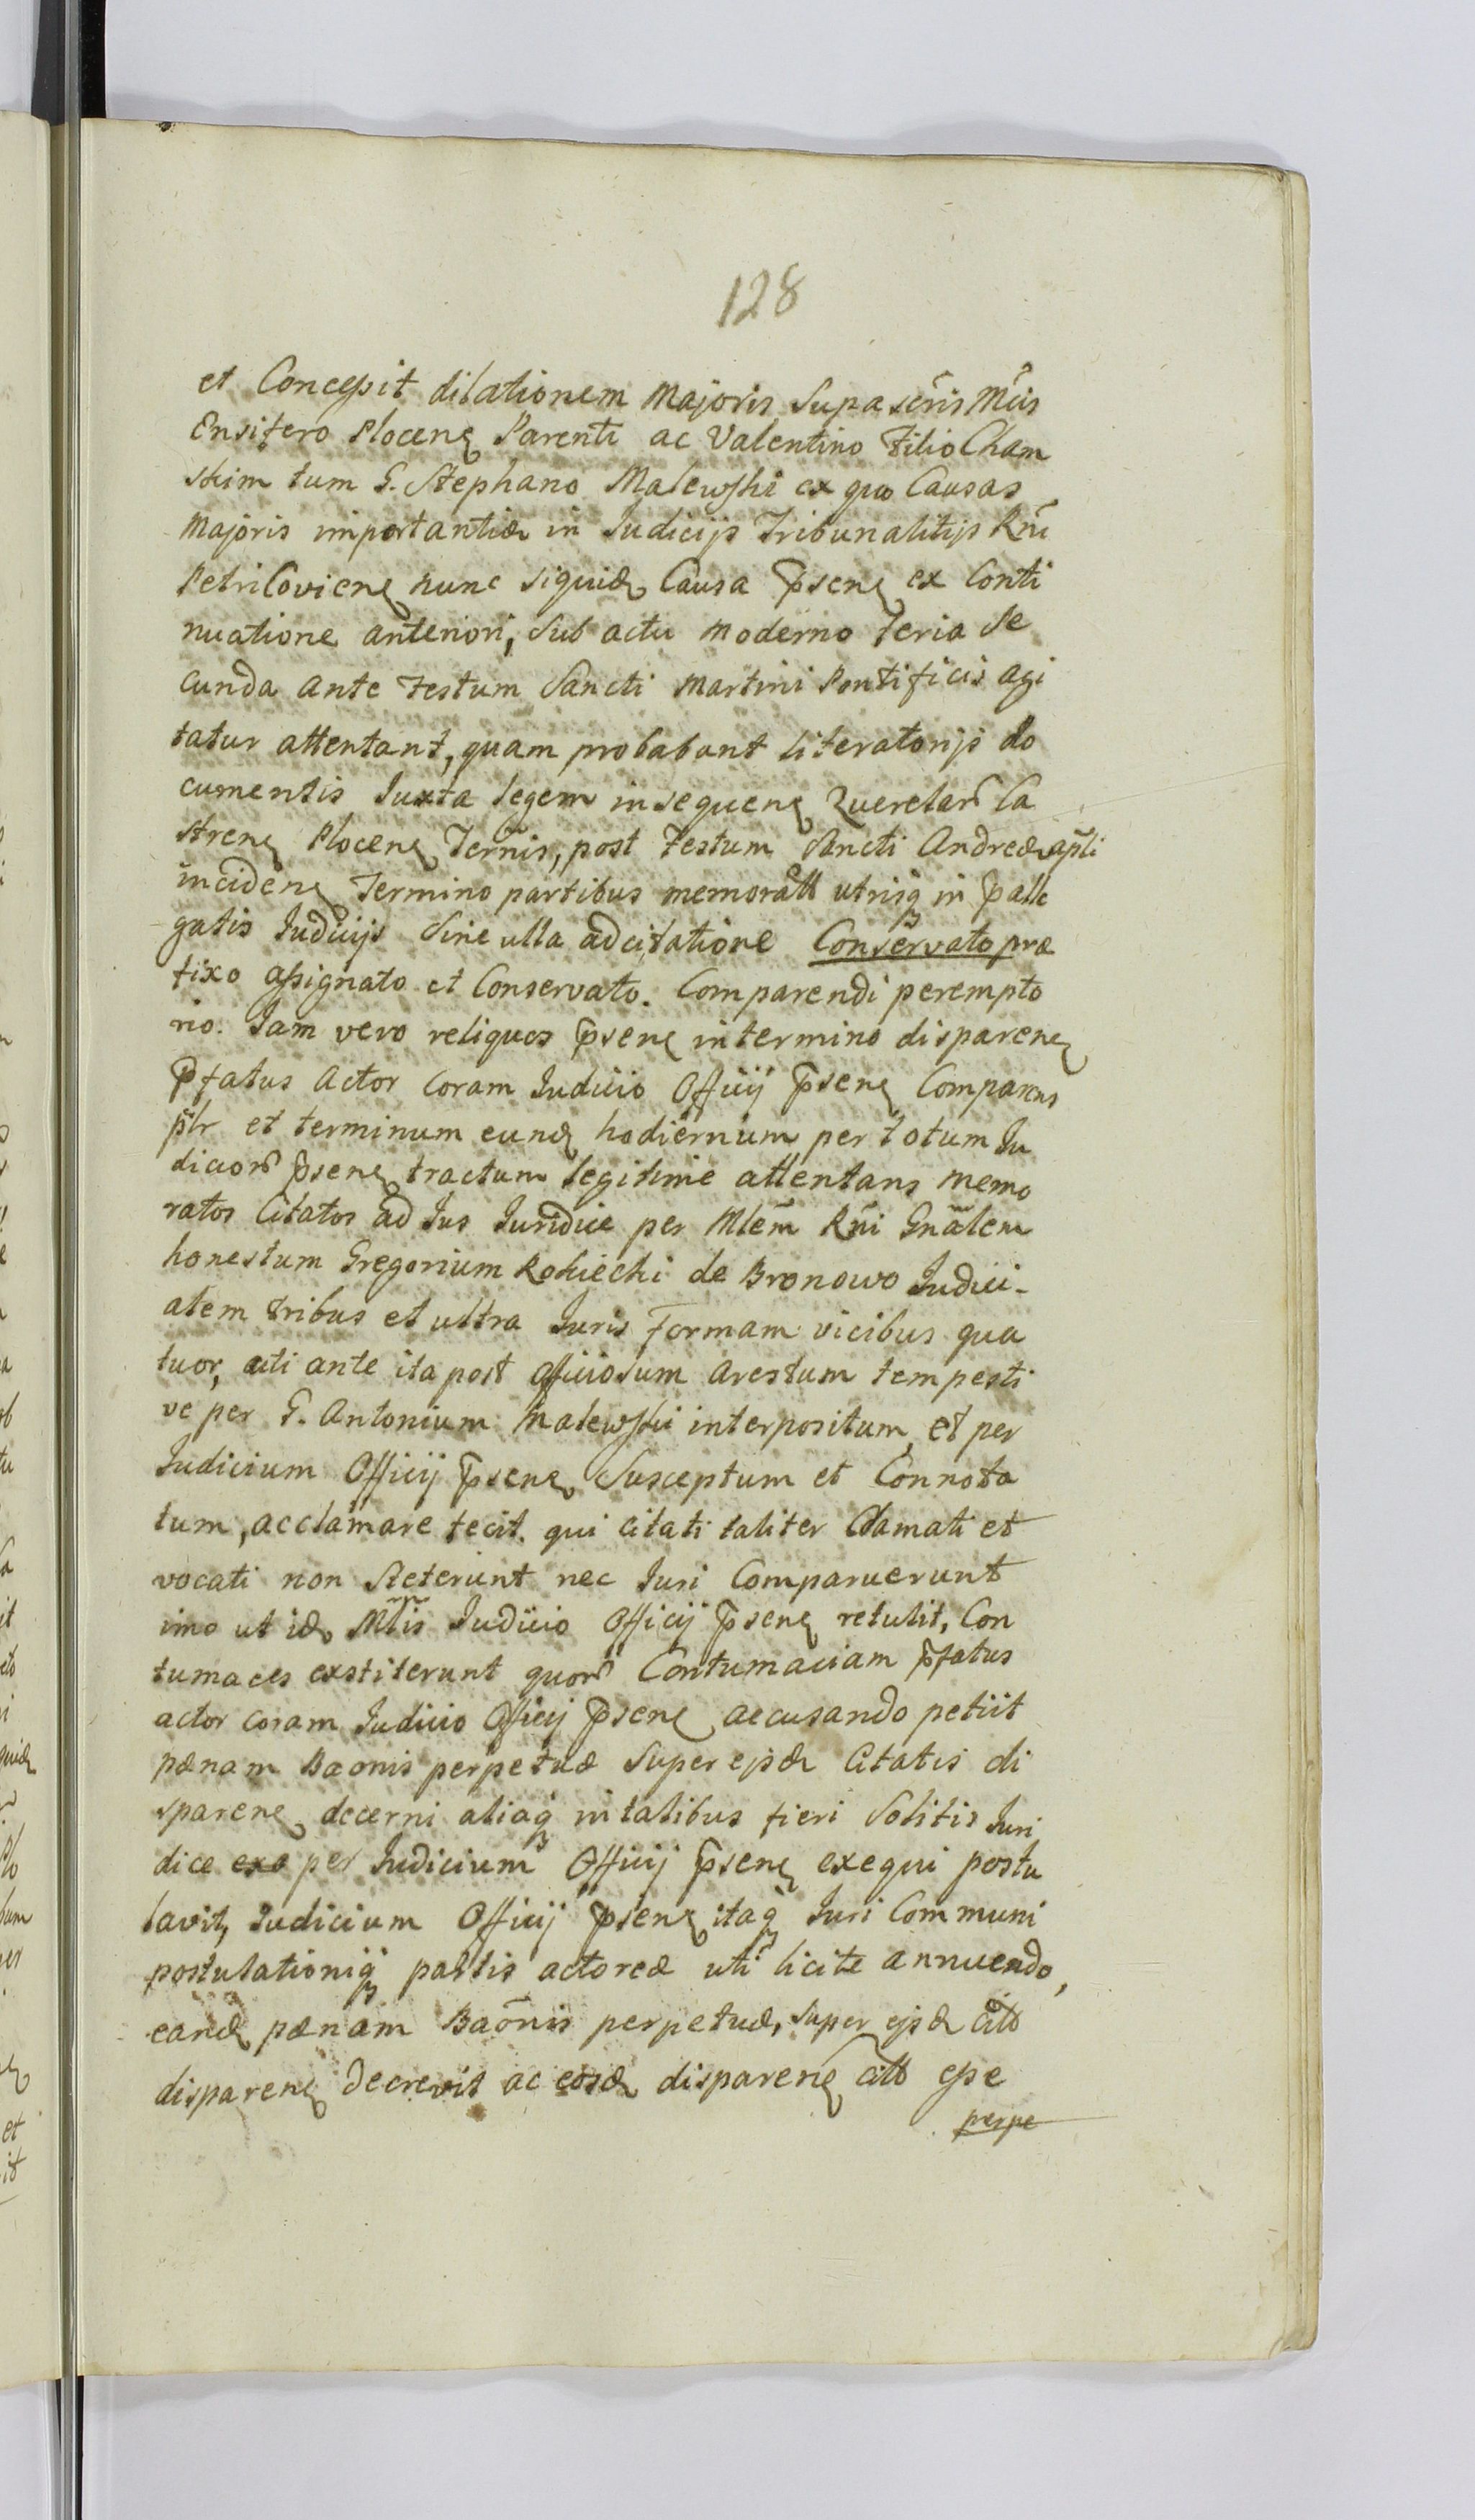 128
et Concessit dilationem Majoris Supascr̃is Mc̃is
Ensifero Plocen̨ Parenti ac Valentino Filio Cham
skim tum G. Stephano Malewski ex quo Causas
Majoris importantiæ in Judicijs Tribunalitijs Rñi
Petricovien̨ nunc siquid̨ Causa p̃sen̨ ex Conti
nuatione anteriori, Sub actu moderno Feria Se
cunda ante Festum Sancti Martini Pontificis agi
tatur attentant, quam probabunt literatorijs do
cumentis Juxta legem insequen̨ Querelar̃ Ca
stren̨ Plocen̨ Ter̃nis, post Festum Sancti Andreæ apl̃i
inciden̨ Termino partibus memoratt̃ utrisq̨ in p̃alle
gatis Judicijs Sine ulla adcitatione Conservato præ
fixo assignato et Conservato. Comparendi perempto
rio. Jam vero reliquos p̃sen̨ in termino disparen̨
p̃fatus Actor Coram Judicio Officij p̃sen̨ Comparens
pl̃r et terminum eund̨ hodiernum per totum Ju
dicior̃ p̃sen̨ tractum legitime attentans memo
ratos Citatos ad Jus Juridice per Mlẽm Rñi Gnãlem
honestum Gregorium Rokicki de Bronowo Judici-
atem tribus et ultra Juris Formam vicibus qua
tuor, uti ante ita post officiosum arestum tempesti
ve per G. Antonium Malewski interpositum, et per
Judicium Officij p̃sen̨ Susceptum et Connota
tum, acclamare fecit. qui citati taliter Clamati et
vocati non Steterunt nec Juri Comparuerunt
imo ut id̨ Ml̃is Judicio Officij p̃sen̨ retulit, Con
tumaces exstiterunt quor̃ Contumaciam p̃fatus
actor coram Judicio Officij p̃sen̨ accusando petiit
pænam Baonis perpetuæ Super ejsd̨ Citatis di
sparen̨ decerni aliaq̨ in talibus fieri Solitis Juri
dice exo per Judicium Officij p̃sen̨ exequi postu
lavit, Judicium Officij p̃sen̨ itaq̨ Juri Communi
postulationiq̨ partis actoreæ uti licite annuendo,
eand̨ pænam Baõnis perpetuæ, super ejsd̨ citt̃
disparen̨ decrevit ac eosd̨ disparen̨ citt̃ esse
perpe